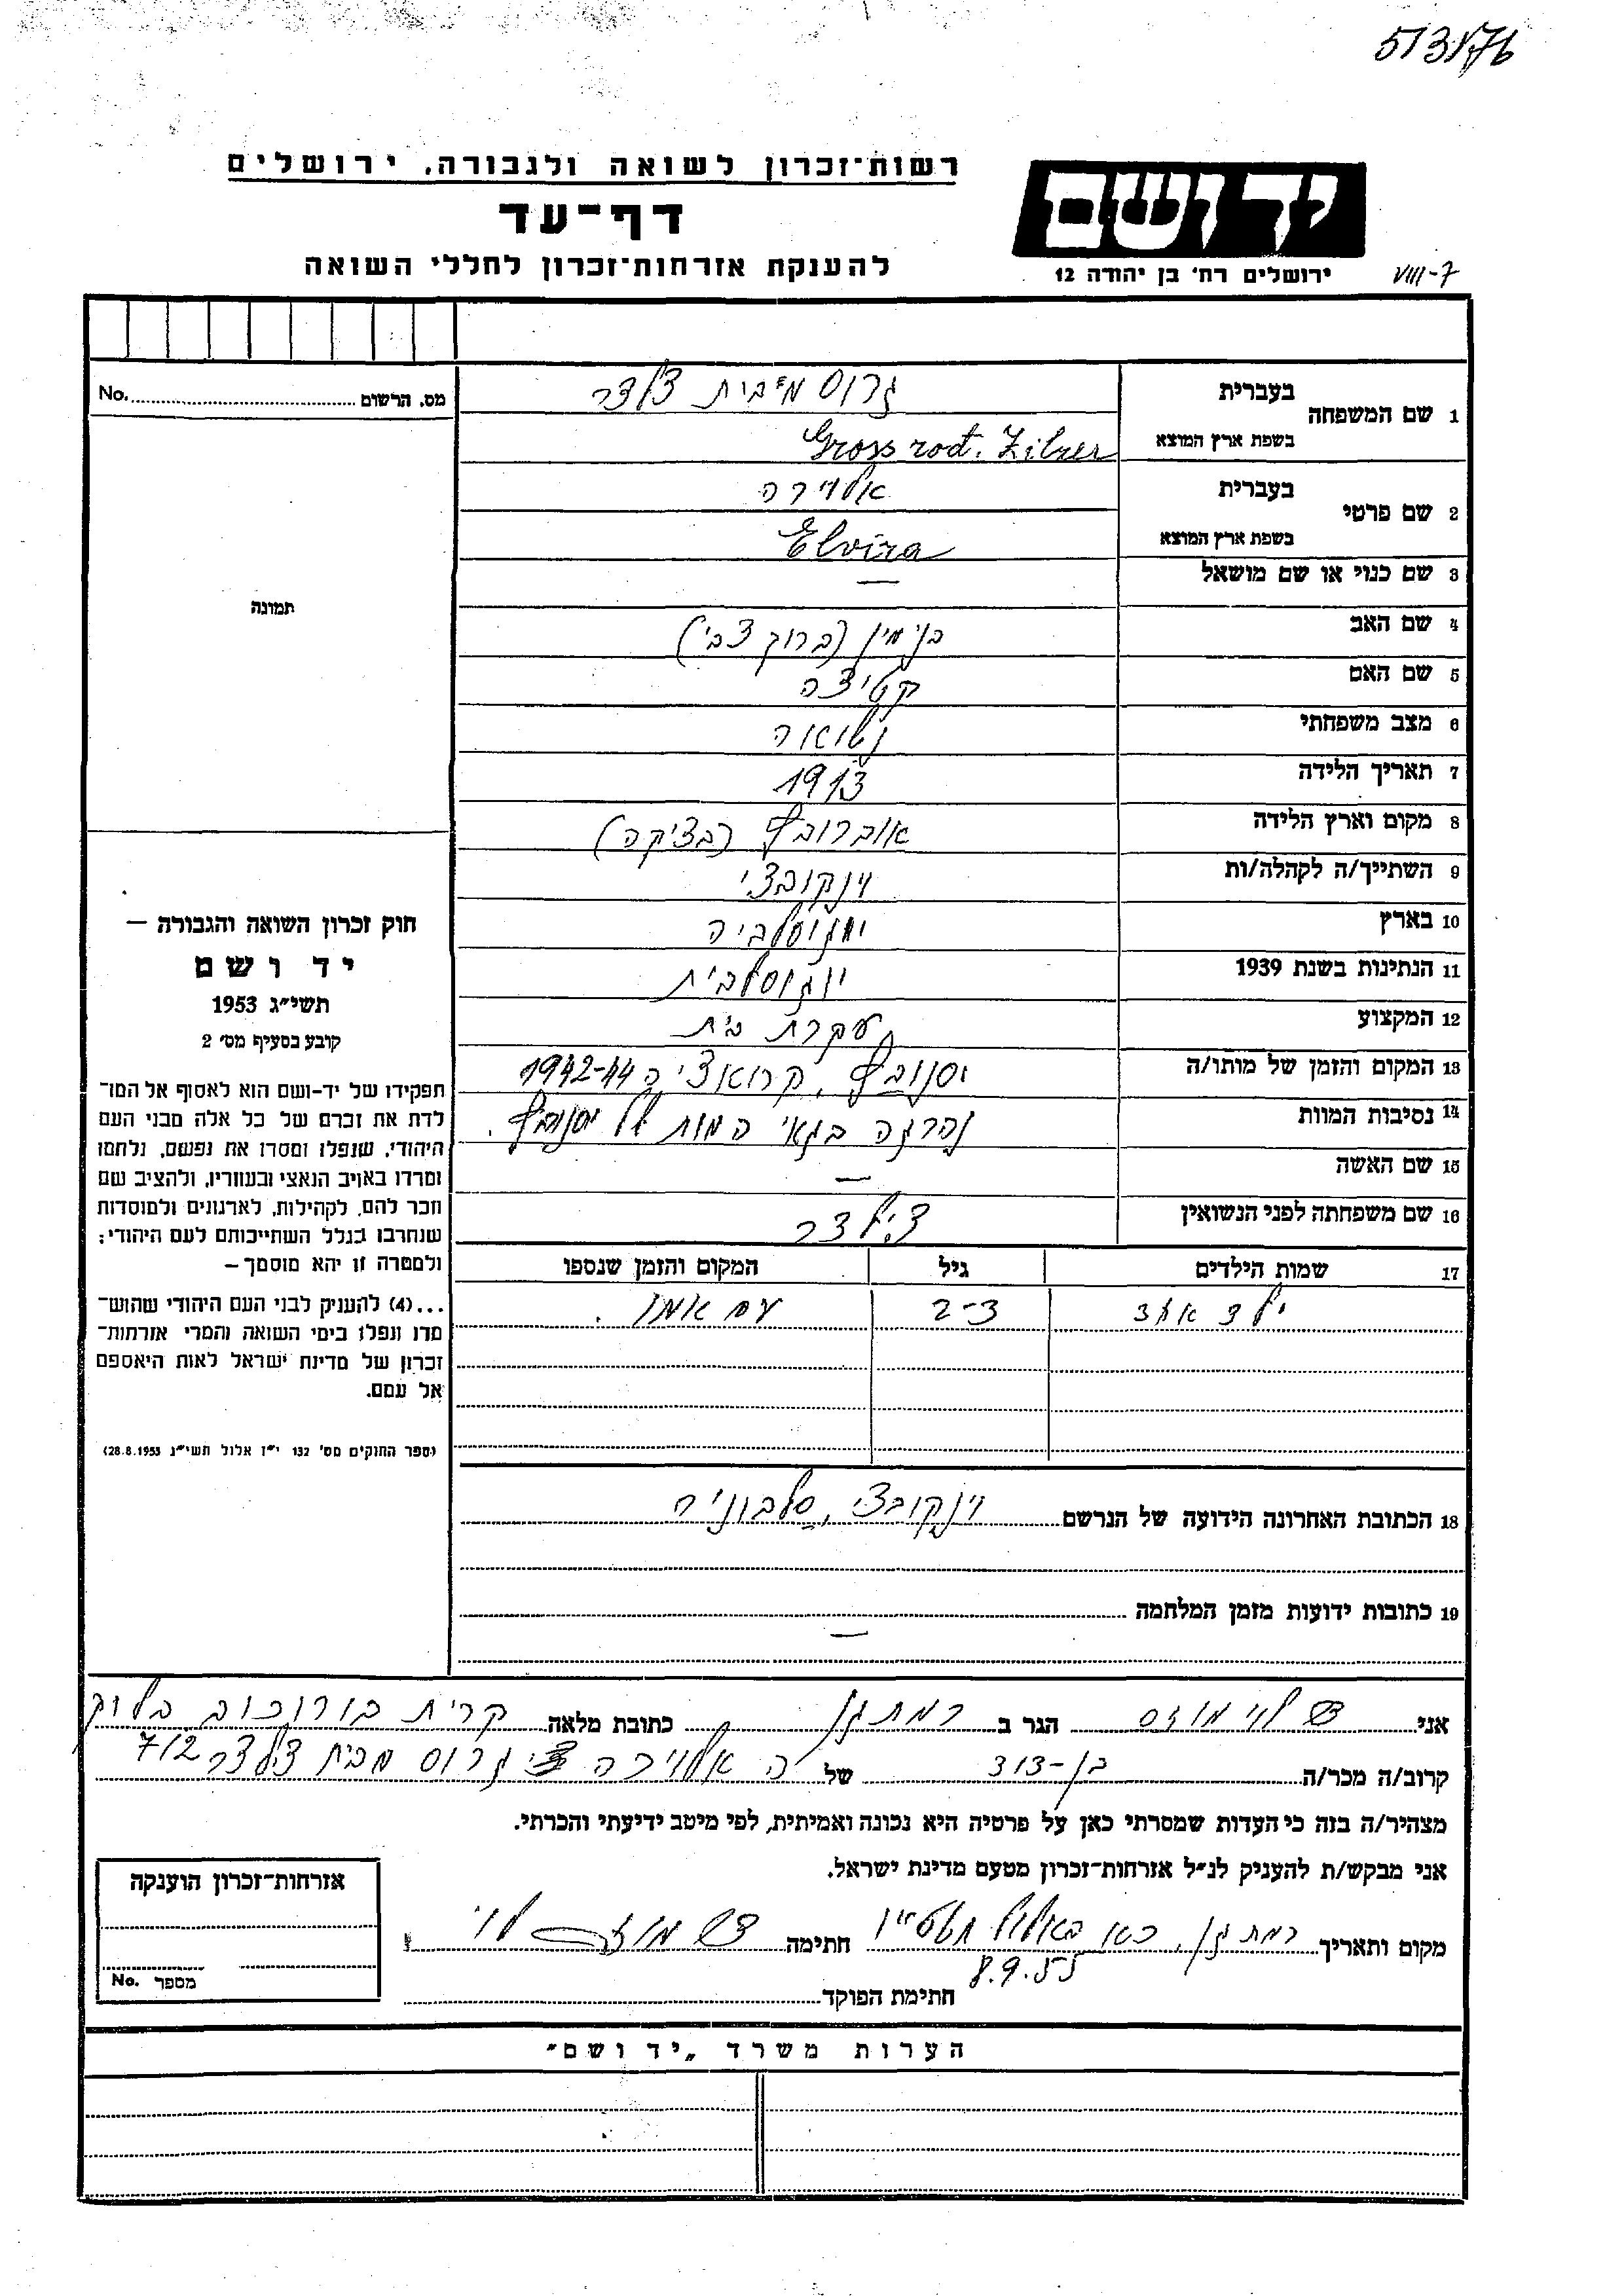 513176
רשות־זכרון לשואה ולגבורה, ירושלים
דף־עד
להענקת אזרחות־זכרון לחללי השואה
יד ושם
ירושלים רח׳ בן יהודה 12
VIII-7
מס. הרשום No.
1 שם המשפחה בעברית גרוס מבית צילצר
בשפת ארץ המוצא Gross rođ. Zilzer
2 שם פרטי בעברית אלוירה
בשפת ארץ המוצא Elvira
3 שם כנוי או שם מושאל —
תמונה
4 שם האב בנימין (ברוך צבי)
5 שם האם קטיצה
6 מצב משפחתי נשואה
7 תאריך הלידה 1913
8 מקום וארץ הלידה אוברובץ (בצ׳קה)
9 השתייך/ה לקהלה/ות וינקובצי
10 בארץ יוגוסלביה
11 הנתינות בשנת 1939 יוגוסלבית
12 המקצוע עקרת בית
13 המקום והזמן של מותו/ה יסנובץ, קרואציה 1942-44
14 נסיבות המוות נהרגה בגאי המות של יסנובץ.
15 שם האשה —
16 שם משפחתה לפני הנשואין צילצר
17 שמות הילדים גיל המקום והזמן שנספו
ילד אחד 2-3 עם אמו.
18 הכתובת האחרונה הידועה של הנרשם וינקובצי, סלבוניה
19 כתובות ידועות מזמן המלחמה
—
חוק זכרון השואה והגבורה —
יד ושם
תשי״ג 1953
קובע בסעיף מס׳ 2
תפקידו של יד־ושם הוא לאסוף אל המו־
לדת את זכרם של כל אלה מבני העם
היהודי, שנפלו ומסרו את נפשם, נלחמו
ומרדו באויב הנאצי ובעוזריו, ולהציב שם
וזכר להם, לקהילות, לארגונים ולמוסדות
שנחרבו בגלל השתייכותם לעם היהודי;
ולמטרה זו יהא מוסמך —
...(4) להעניק לבני העם היהודי שהוש־
מדו ונפלו בימי השואה והמרי אזרחות־
זכרון של מדינת ישראל לאות היאספם
אל עמם.
(ספר החוקים מס׳ 132 י״ז אלול תשי״ג 28.8.1953)
אני לוי מוזס הגר ב רמת גן כתובת מלאה קרית בורוכוב בלוק
קרוב/ה מכר/ה בן-דוד של ה אלוירה גרוס מבית צילצר 7/2
מצהיר/ה בזה כי העדות שמסרתי כאן על פרטיה היא נכונה ואמיתית, לפי מיטב ידיעתי והכרתי.
אני מבקש/ת להעניק לנ״ל אזרחות־זכרון מטעם מדינת ישראל.
מקום ותאריך רמת גן, כא באלול תשט״ו חתימה מוזס לוי
8.9.55
חתימת הפוקד
אזרחות־זכרון הוענקה
מספר No.
הערות משרד „יד ושם״